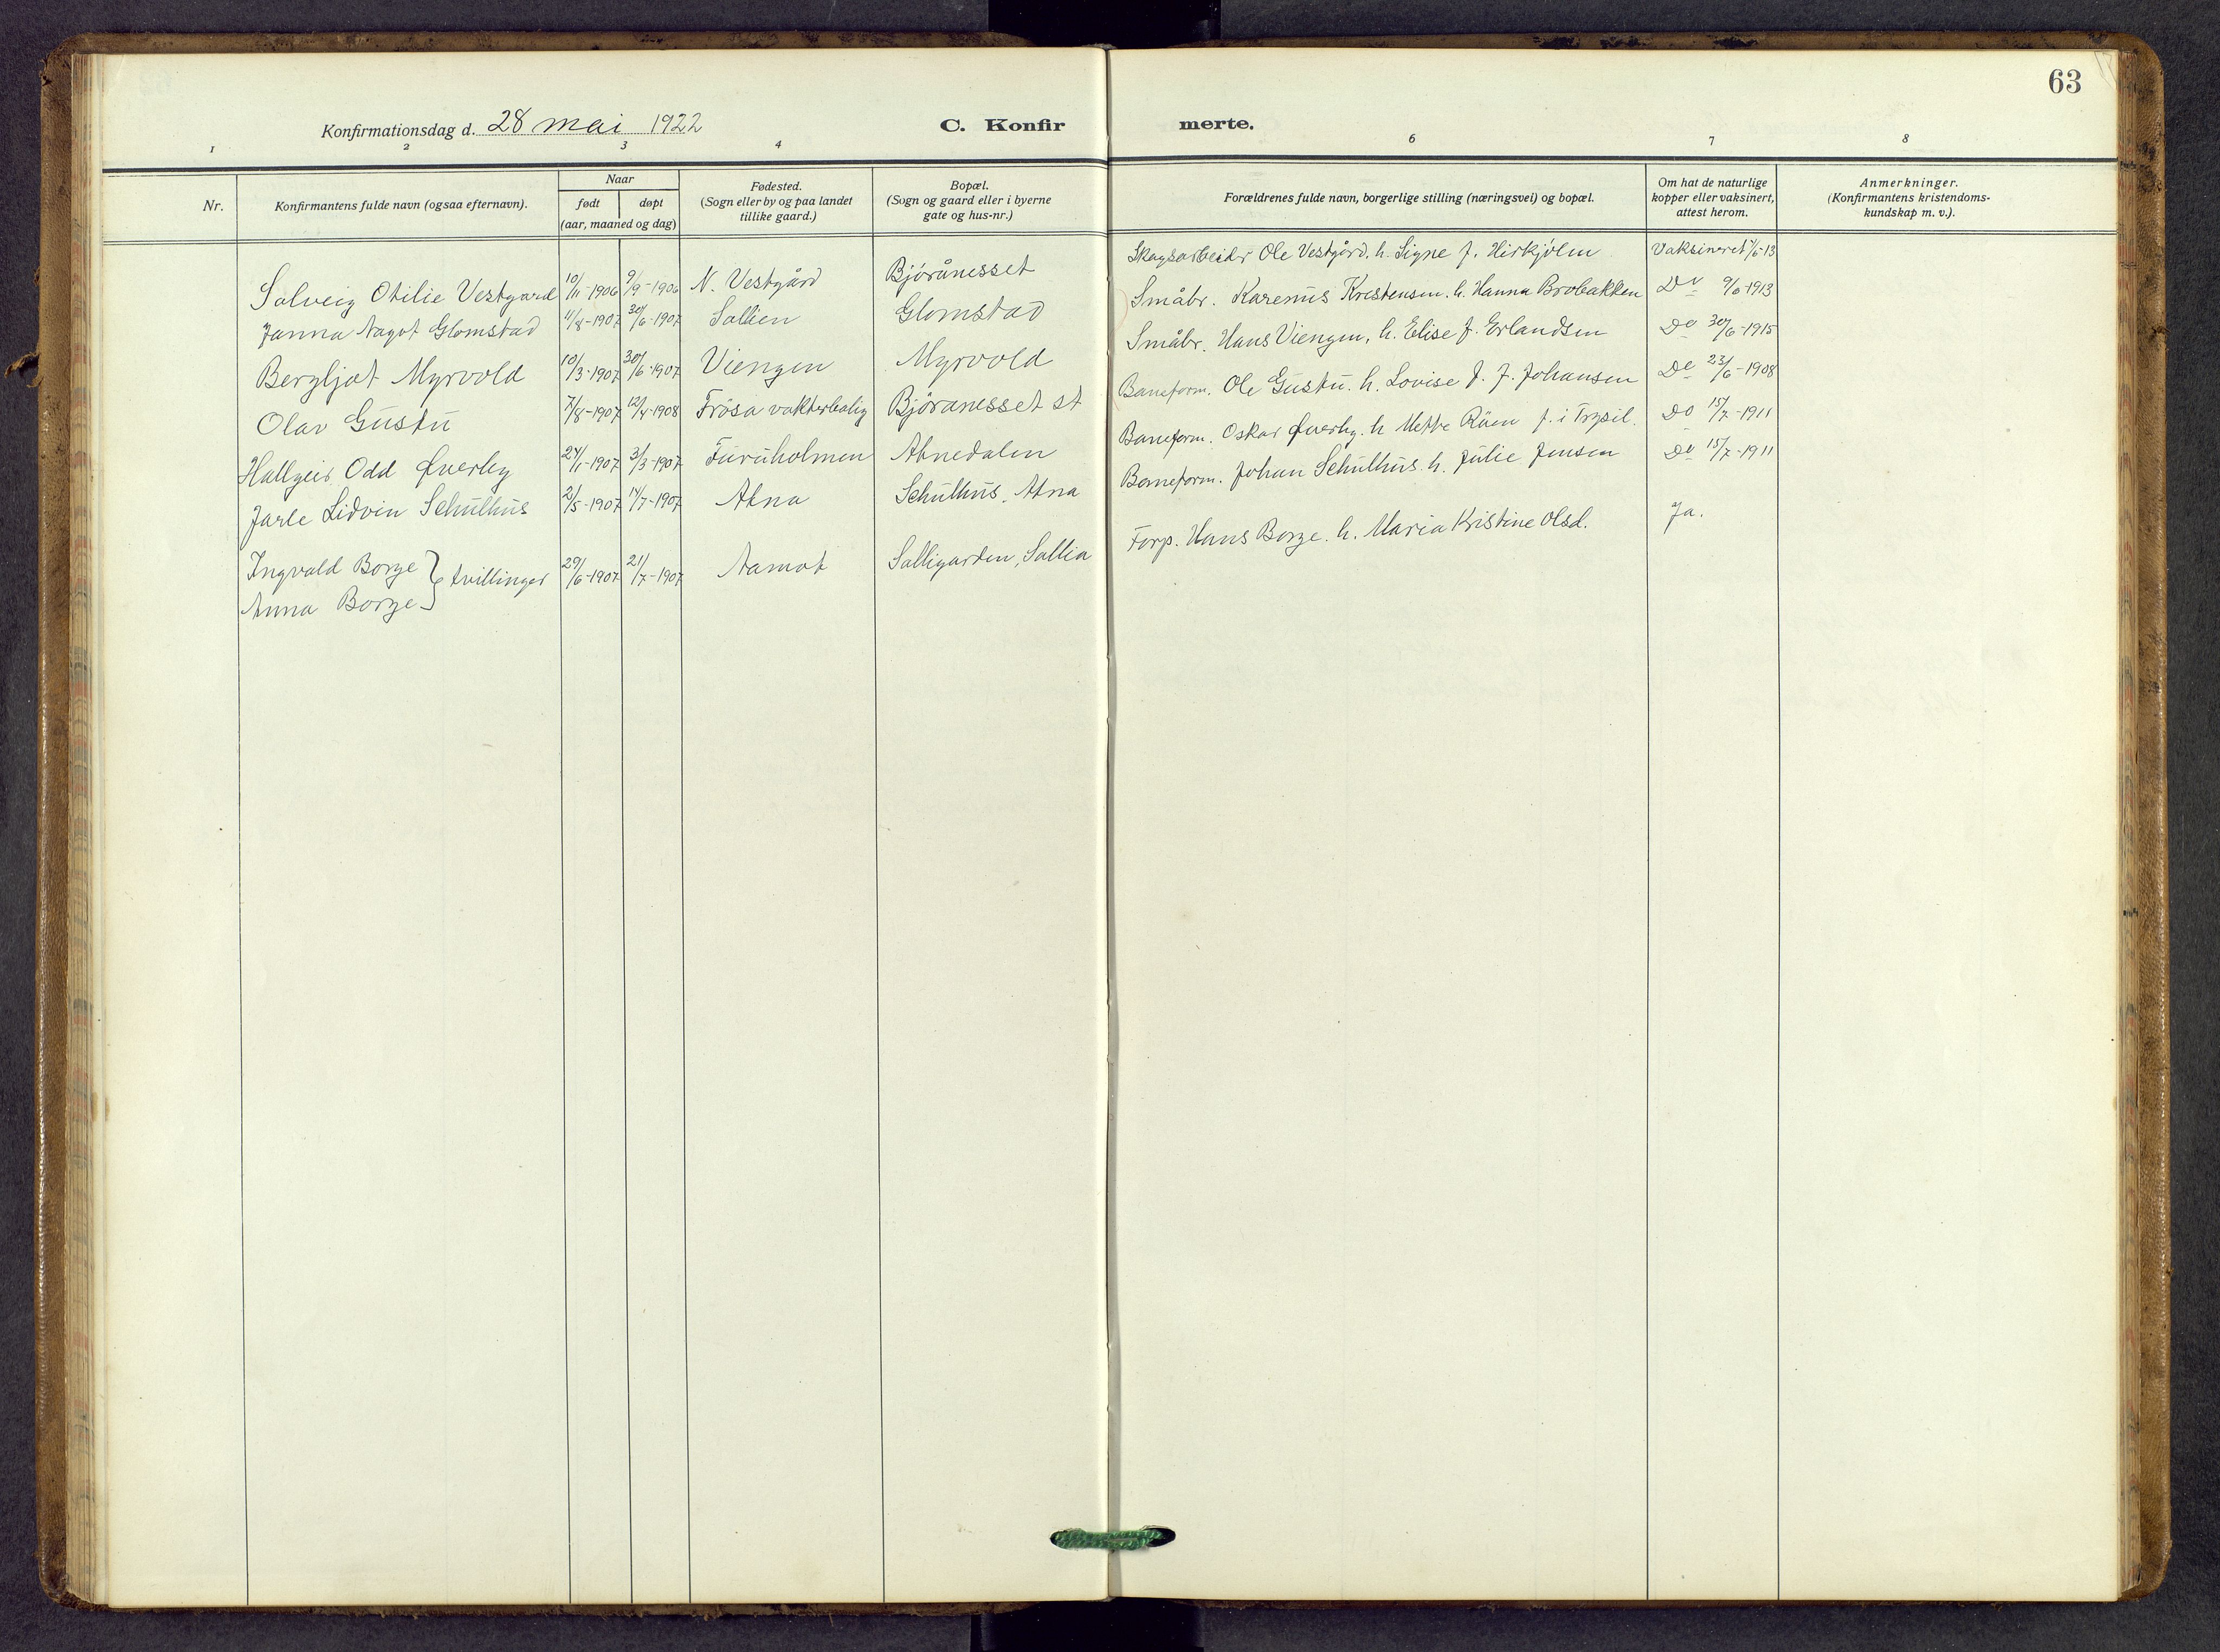 63
Konfirmationsdag d. 28 mai 1922
C. Konfir merte.
1 2 3 4 6 7 8
Nr.
Konfirmantens fulde navn (ogsaa efternavn).
Naar
født døpt
(aar, maaned og dag)
Fødested.
(Sogn eller by og paa landet
tillike gaard.)
Bopæl.
(Sogn og gaard eller i byerne
gate og hus-nr.)
Forældrenes fulde navn, borgerlige stilling (næringsvei) og bopæl.
Om hat de naturlige
kopper eller vaksinert,
attest herom.
Anmerkninger.
(Konfirmantens kristendoms-
kundskap m. v.).
Solveig Otilie Vestgård 10/11-1906 9/9-1906 N. Vestgård Bjørånesset Skogsarbeidr Ole Vestgård. h. Signe f. Hirkjølen Vaksineret /6-13
Janna Aagot Glomstad 11/8-1907 30/6-1907 Sollien Glomstad Småbr. Karenus Kristensen. h. Hanna Brobakken Do 9/6-1913
Bergljot Myrvold 10/3-1907 30/6-1907 Viengen Myrvold Småbr. Hans Viengen, h. Elise f. Erlandsen Do 30/6-1915
Olav Gustu 7/8-1907 12/4-1908 Frösa vakterbolig Bjøranesset st Baneform. Ole Gustu. h. Lovise J. f. Johansen Do 23/6-1908
Hallgeir Odd Øverby 24/1-1907 3/3-1907 Furuholmen Atnedalen Baneform. Oskar Øverby. h Mette Råen f. i Trysil. Do 15/7-1911
Jarle Lidvin Schulhus 2/5-1907 14/7-1907 Atna Schulhus, Atna Baneform. Johan Schulhus. h. Julie Jensen Do 15/7-1911
Ingvald Borge } tvillinger 29/6-1907 21/7-1907 Aamot Solligarden, Sollia Forp. Hans Borge. h. Maria Kristine Olsd. Ja.
Anna Borge